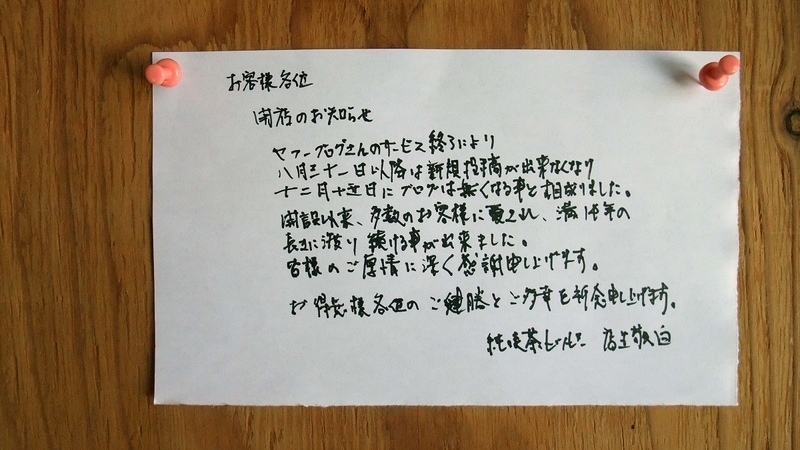 お客様各位
閉店のお知らせ
ヤフーブログさんのサービス終了により
八月三十一日以降は新規投稿が出来なくなり
十二月十五日にブログは無くなる事と相成りました。
開設以来、多数のお客様に来され、満14年の
長きに渡り続ける事が出来ました。
皆様のご厚情に深く感謝申し上げます。
お得意様各位のご健勝とご多幸を祈念申し上げます。
純喫茶 店主敬白